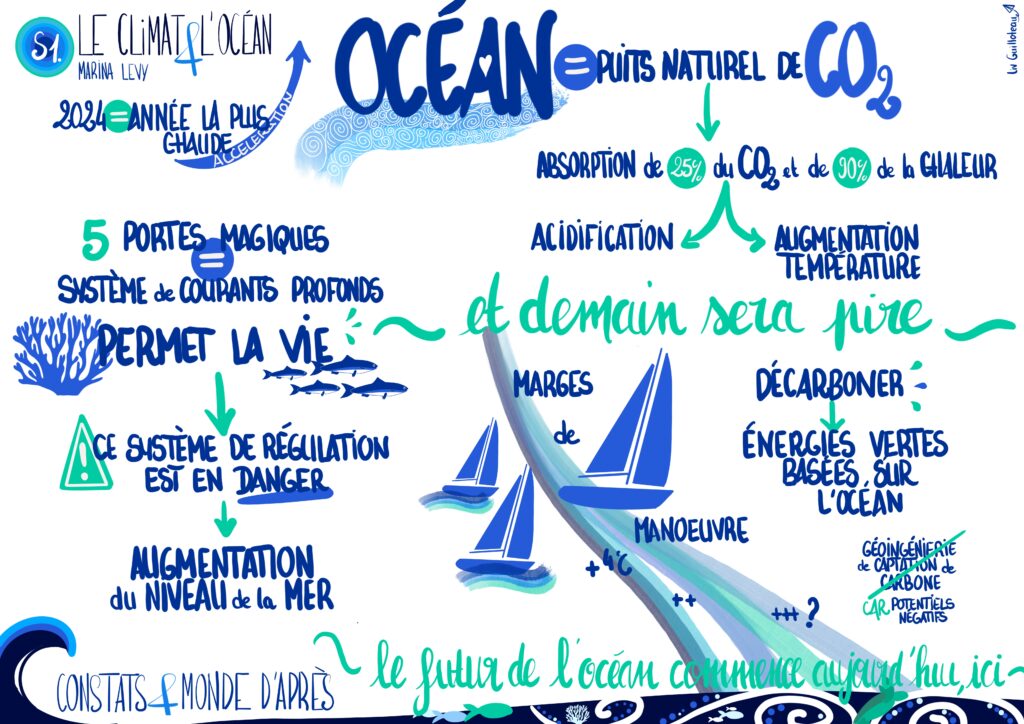 S1.
LE CLIMAT & L'OCÉAN
MARINA LEVY
2024 = ANNÉE LA PLUS
CHAUDE
ACCELERATION
OCÉAN = PUITS NATUREL DE CO2
Liv Guilloteau
ABSORPTION de 25% du CO2 et de 90% de la CHALEUR
ACIDIFICATION
AUGMENTATION
TEMPÉRATURE
5 PORTES MAGIQUES
=
SYSTÈME de COURANTS PROFONDS
PERMET LA VIE
CE SYSTÈME DE RÉGULATION
EST EN DANGER
AUGMENTATION
du NIVEAU de la MER
et demain sera pire
MARGES
de
MANOEUVRE
+4°C
++
+++ ?
DÉCARBONER
ÉNERGIES VERTES
BASÉES SUR
L'OCÉAN
GÉOINGÉNIERIE
de CAPTATION de
CARBONE
CAR POTENTIELS
NÉGATIFS
CONSTATS & MONDE D'APRÈS
le futur de l'océan commence aujourd'hui, ici